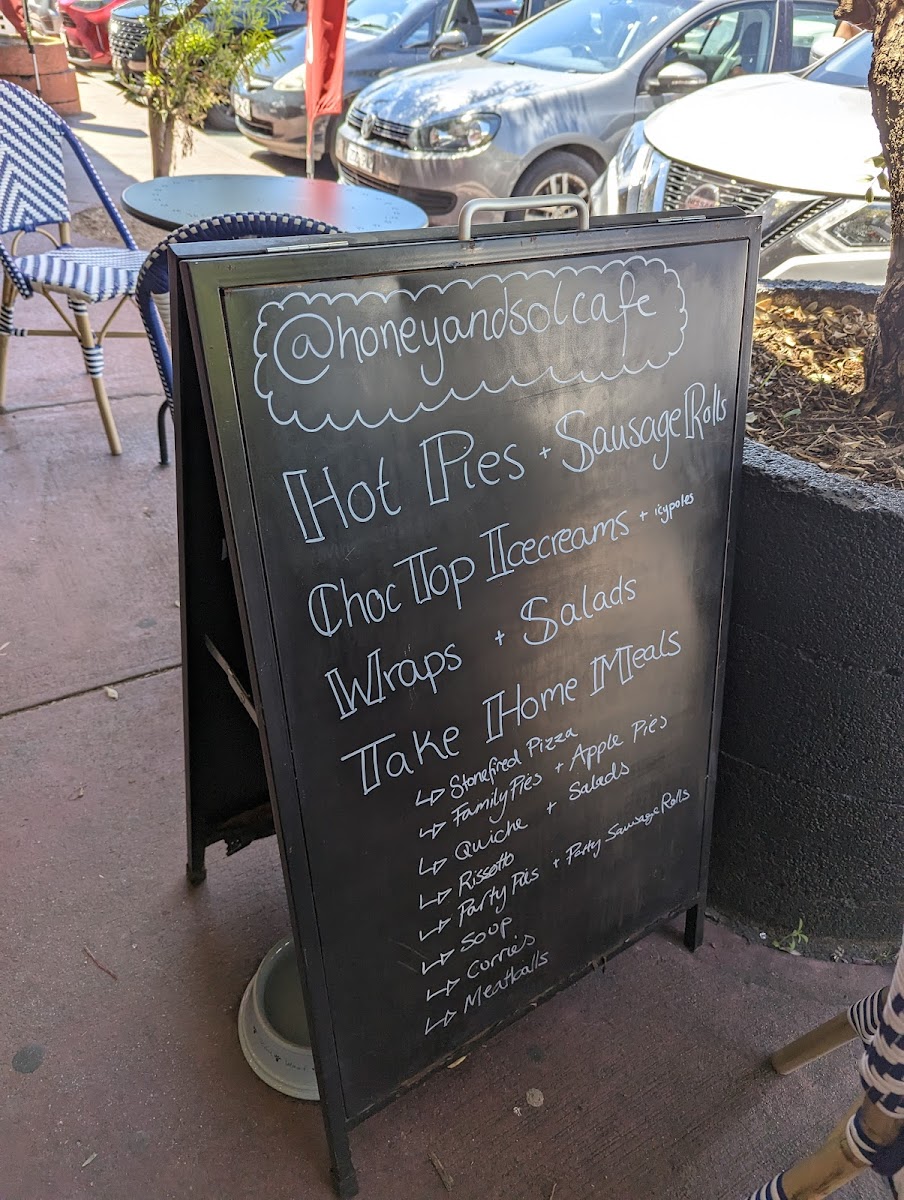 @honeyandsolcafe
Hot Pies + Sausage Rolls
Choc Top Icecreams + icypoles
Wraps + Salads
Take Home Meals
↳ Stonefired Pizza
↳ Family Pies + Apple Pies
↳ Quiche + Salads
↳ Rissotto
↳ Party Pies + Party Sausage Rolls
↳ Soup
↳ Curries
↳ Meatballs